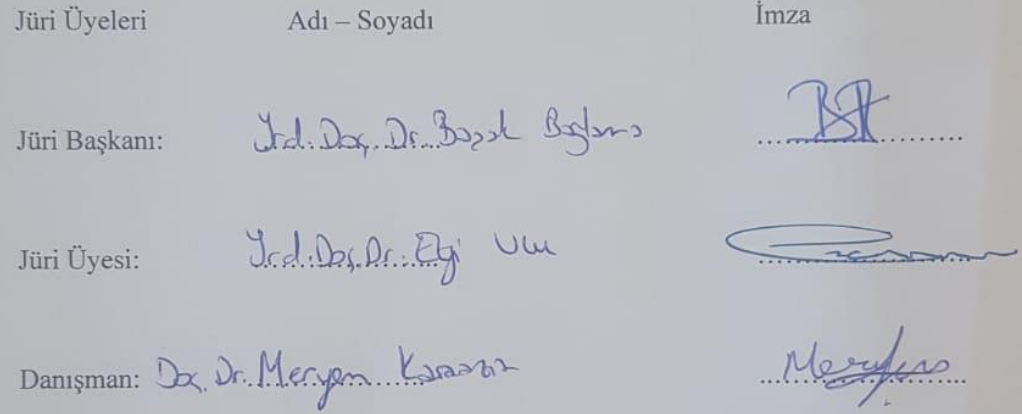 Jüri Üyeleri Adı – Soyadı İmza
Jüri Başkanı: Yrd. Doç. Dr. Başak Bağlama
Jüri Üyesi: Yrd. Doç. Dr. Ezgi Ulu
Danışman: Doç. Dr. Meryem Karaaziz